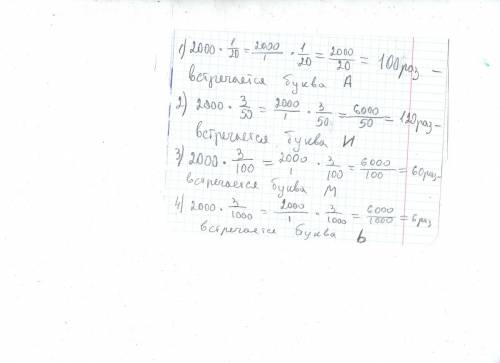 1) 2000 · 1/20 = 2000/1 · 1/20 = 2000/20 = 100 раз –
встречается буква А
2) 2000 · 3/50 = 2000/1 · 3/50 = 6000/50 = 120 раз –
встречается буква И
3) 2000 · 3/100 = 2000/1 · 3/100 = 6000/100 = 60 раз –
встречается буква М
4) 2000 · 3/1000 = 2000/1 · 3/1000 = 6000/1000 = 6 раз
встречается буква Ь